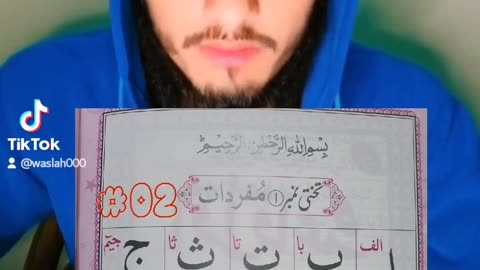 TikTok
@waslah000
بِسْمِ اللّٰهِ الرَّحْمٰنِ الرَّحِيْمِ
#02
تختی نمبر ۱ مُفردات
الف با تا ثا جیم
ا ب ت ث ج